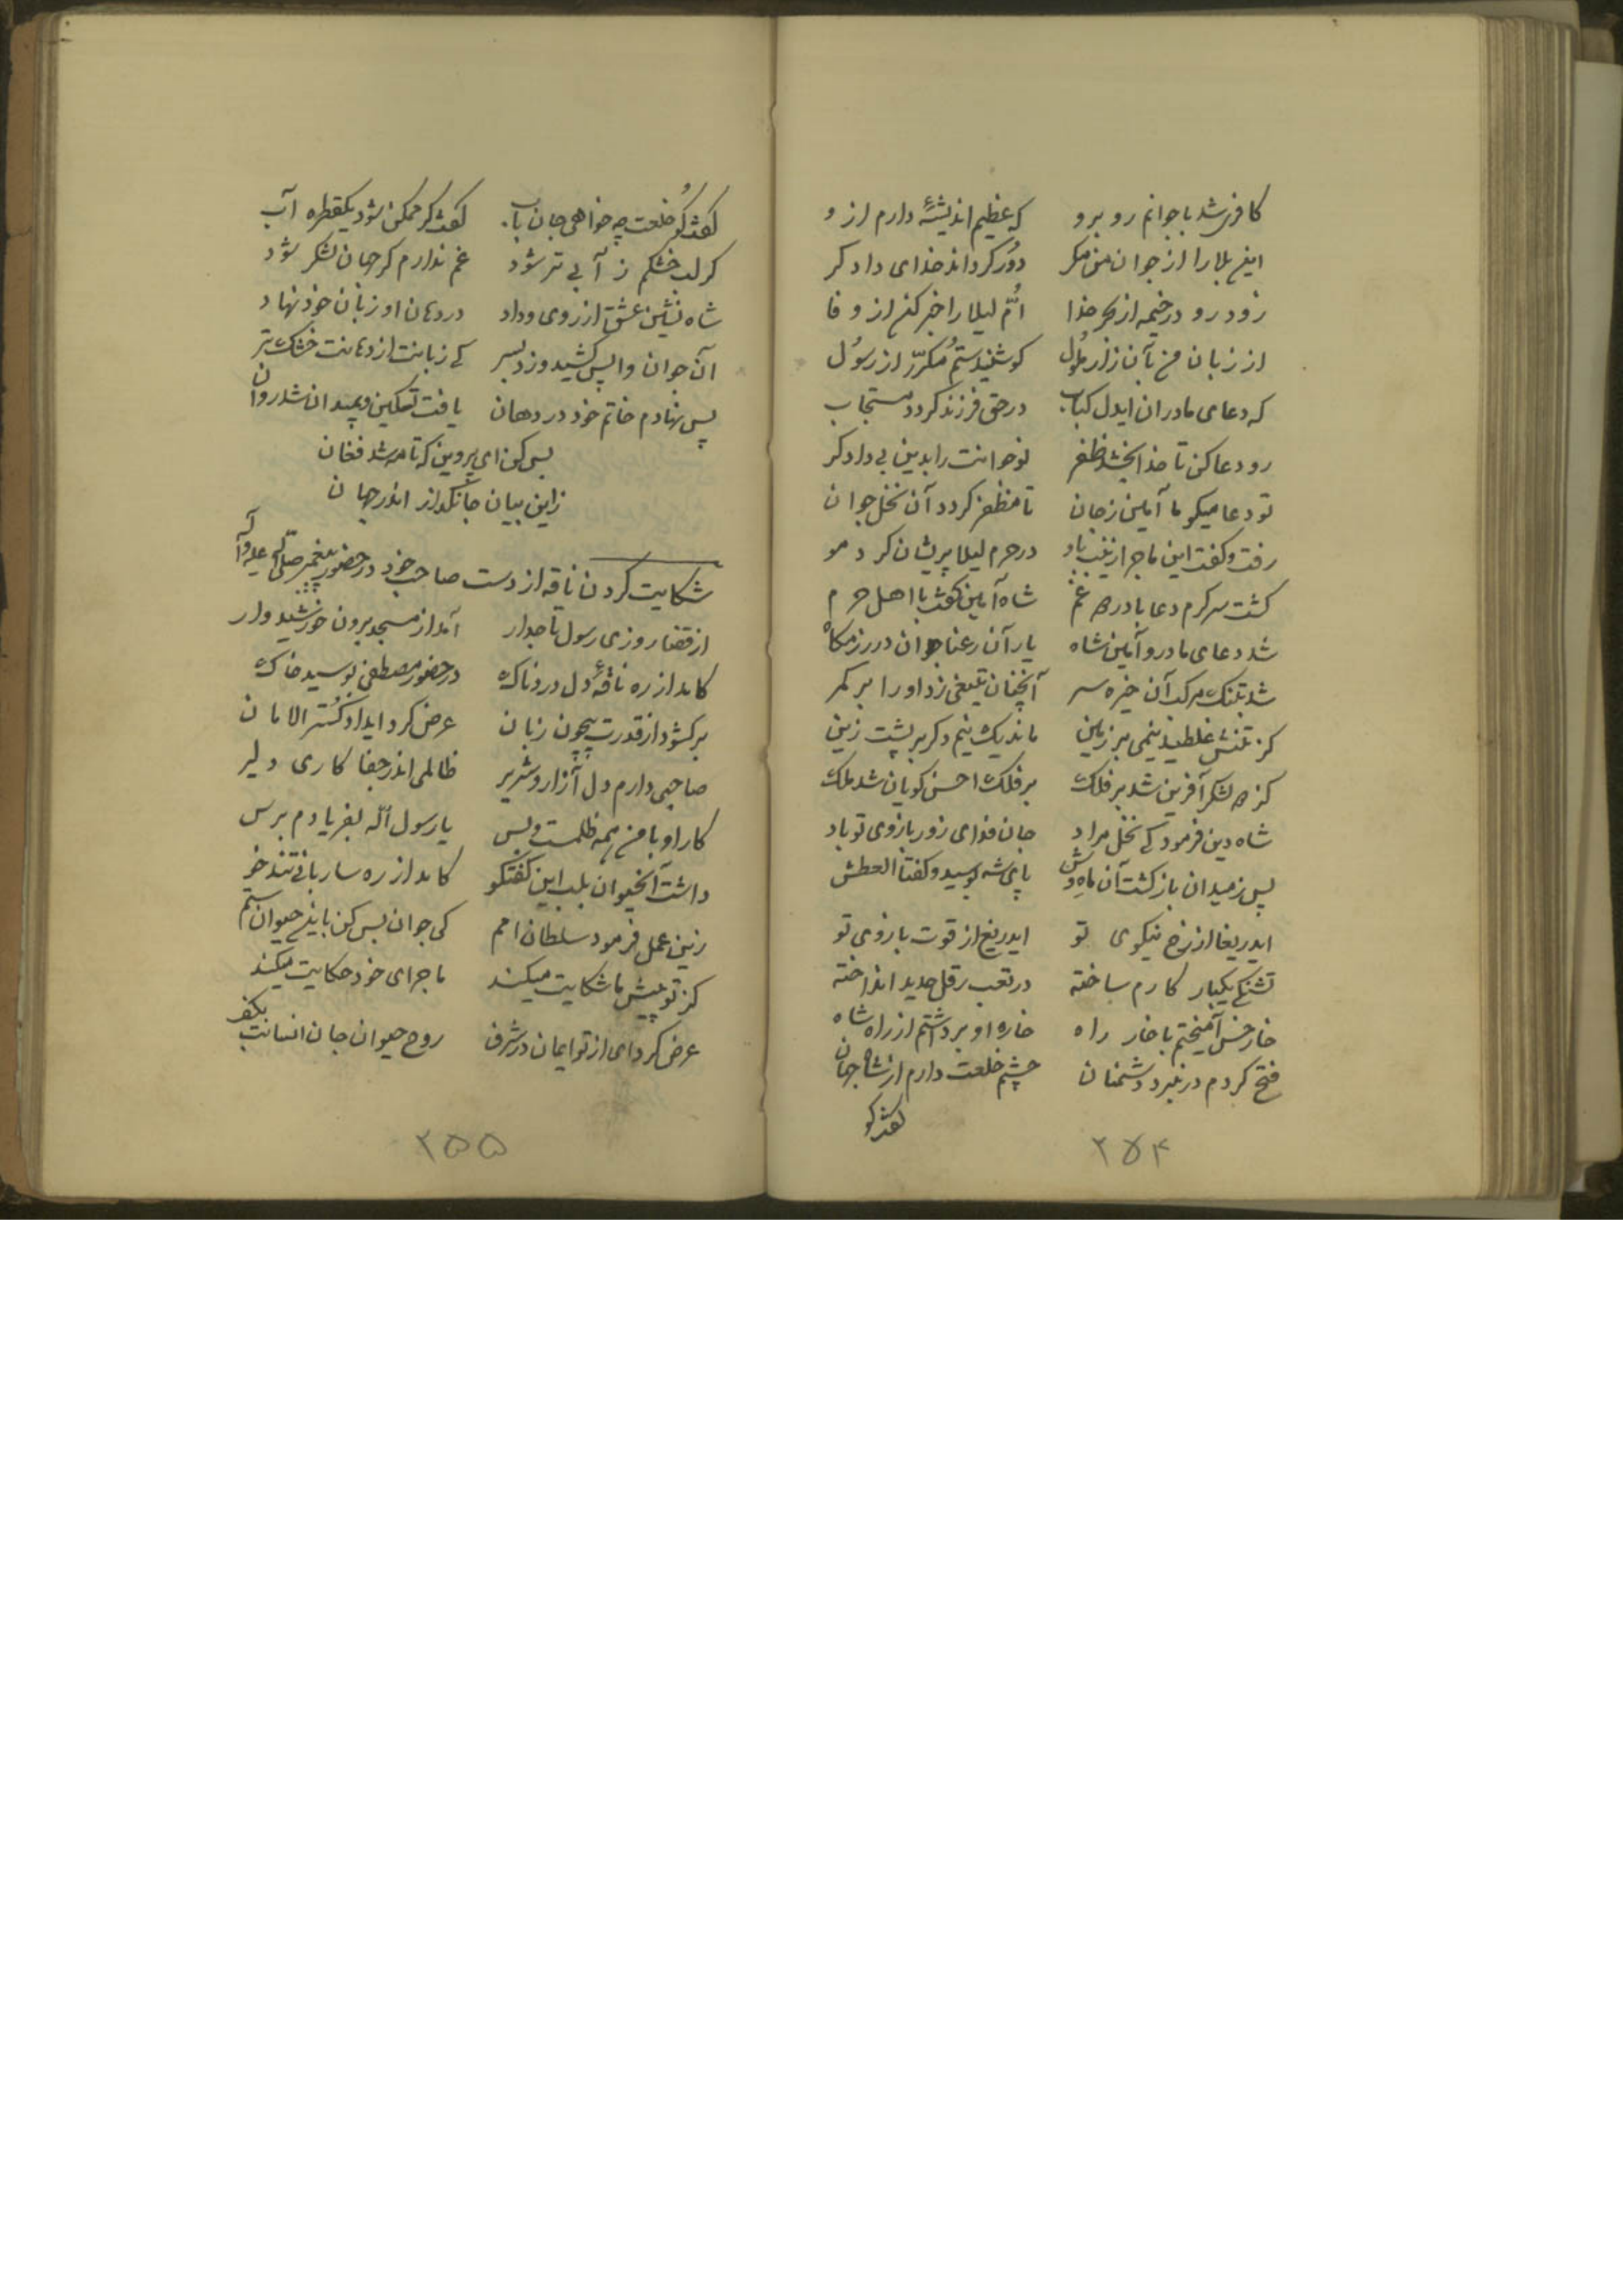 کافری شد با جوانم روبرو که عظیم اندیشهٔ دارم ازو
این بلا را از جوان من مگر دور گرداند خدای دادگر
زود رو در خیمه از بهر خدا امّ لیلا را خبر کن از وفا
از زبان من بآن زار ملول گو شنیدستم مکرّر از رسول
که دعای مادران ایدل کباب در حق فرزند گردد مستجاب
رو دعا کن تا خدا بخشد ظفر نوجوانت را بدین بی دادگر
تو دعا میگو ما آمین ز جان تا مظفر گردد آن نخل جوان
رفت و گفت این ماجرا زینب باو در حرم لیلا پریشان کرد مو
گشت سرگرم دعا با درد و غم شاه آمین گفت با اهل حرم
شد دعای مادر و آمین شاه یار آن رعنا جوان در رزمگاه
شد بتنگ مرکب آن خیره سر آنچنان تیغی زد او را بر کمر
کز تنش غلطید نیمی بر زمین ماند یک نیم دگر بر پشت زین
کز لشکر آفرین شد بر فلک بر فلک احسن گویان شد ملک
شاه دین فرمود کی نخل مراد جان فدای زور بازوی تو باد
پس ز میدان بازگشت آن ماه وش پای شه بوسید و گفتا العطش
ایدریغا از رخ نیکوی تو ایدریغ از قوت بازوی تو
تشنگی یکبار کارم ساخته در تعب ثقل حدید انداخته
خار خس آمیختم با خار راه خاره او برداشتم از راه شاه
فتح کردم در نبرد دشمنان چشم خلعت دارم از شاه جهان
گفت گو
۲۵۴
گفت گو خلعت چه خواهی جان باب گفت گر ممکن شود یکقطره آب
گر لب خشکم ز آبی تر شود غم ندارم گر جهان لشکر شود
شاه نشین عشق از روی وداد در دهان او زبان خود نهاد
آن جوان واپس کشید و زد بسر کی زبانت از دهانت خشک تر
پس نهادم خاتم خود در دهان یافت تسکین و بمیدان شد روان
بس کن ای پروین که تا مه شد فغان
زاین بیان جانگداز اندر جهان
شکایت کردن ناقه از دست صاحب خود در حضور پیغمبر صلی الله علیه و آله
از قضا روزی رسول تاجدار آمد از مسجد برون خورشید وار
کامد از ره ناقهٔ دل دردناک در حضور مصطفی بوسید خاک
برگشود از قدرت بیچون زبان عرض کرد ایدادگستر الامان
صاحبی دارم دل آزار و شریر ظالمی اندر جفا کاری دلیر
کار او با من همه ظلمست و بس یا رسول الله بفریادم برس
داشت آنحیوان بلب این گفتگو کامد از ره ساربانی تند خو
زین عمل فرمود سلطان امم کی جوان بس کن باین حیوان ستم
کز تو پیش ما شکایت میکند ماجرای خود حکایت میکند
عرض کرد ای از تو ایمان در شرف روح حیوان جان انسانت بکف
۲۵۵